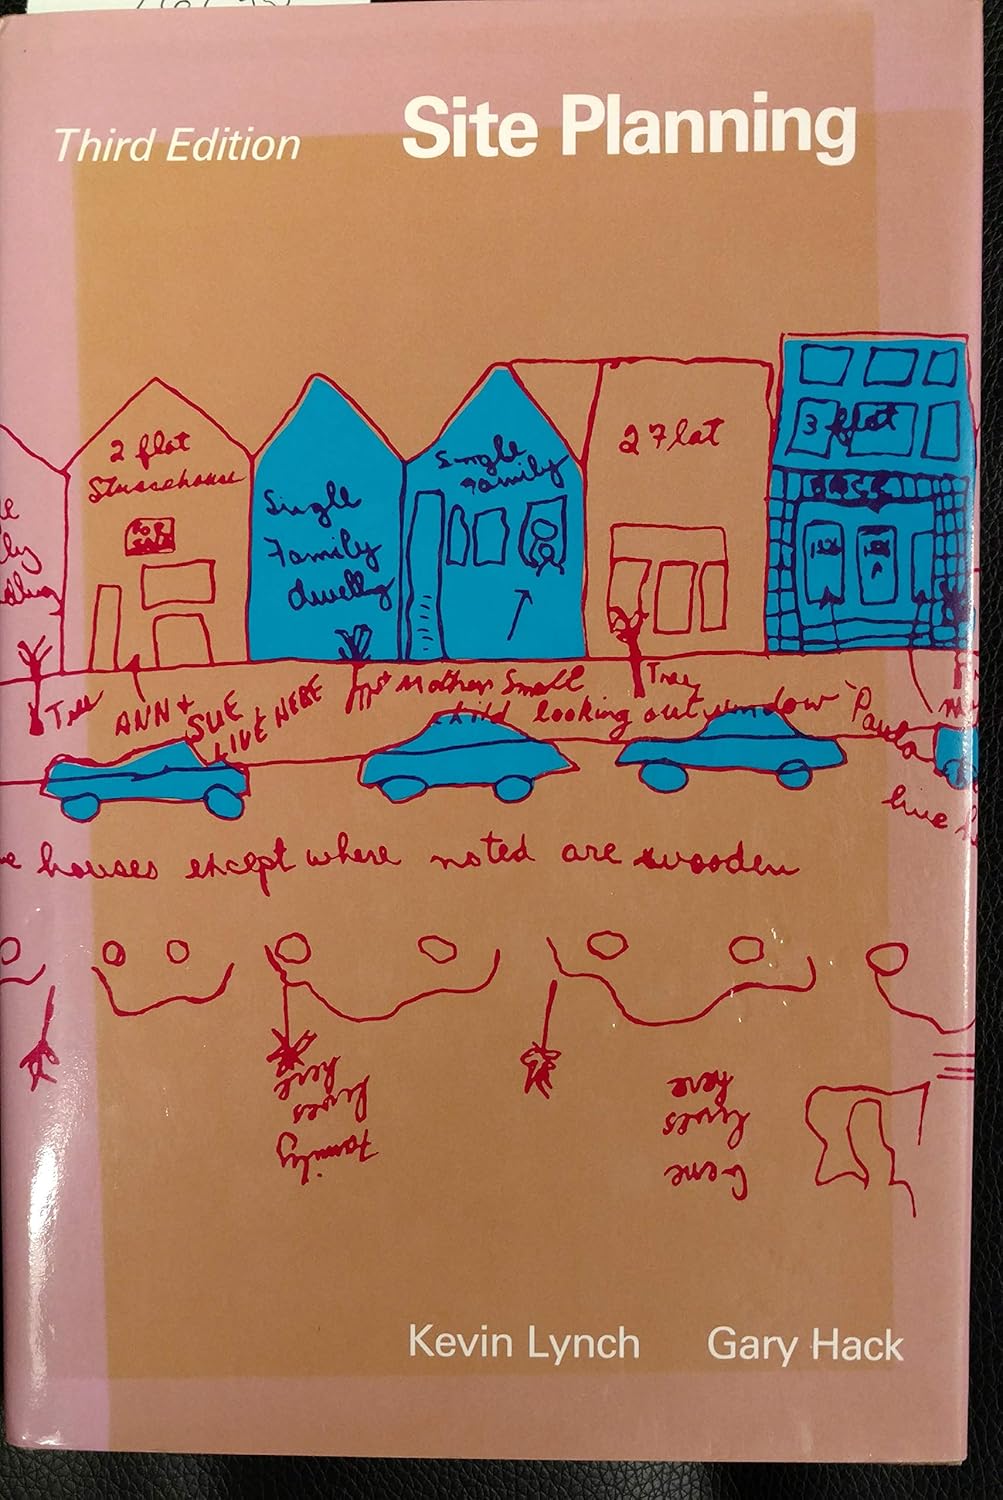 Third Edition
Site Planning
2 flat
FOR
SALE
Single
Family
dwelling
Single
Family
2 Flat
3 flat
Tree
ANN +
SUE
LIVE HERE
Mother Small
child looking out window
Tree
Paula
live
houses except where noted are wooden
Family
lives
here
Gene
lives
here
Kevin Lynch
Gary Hack